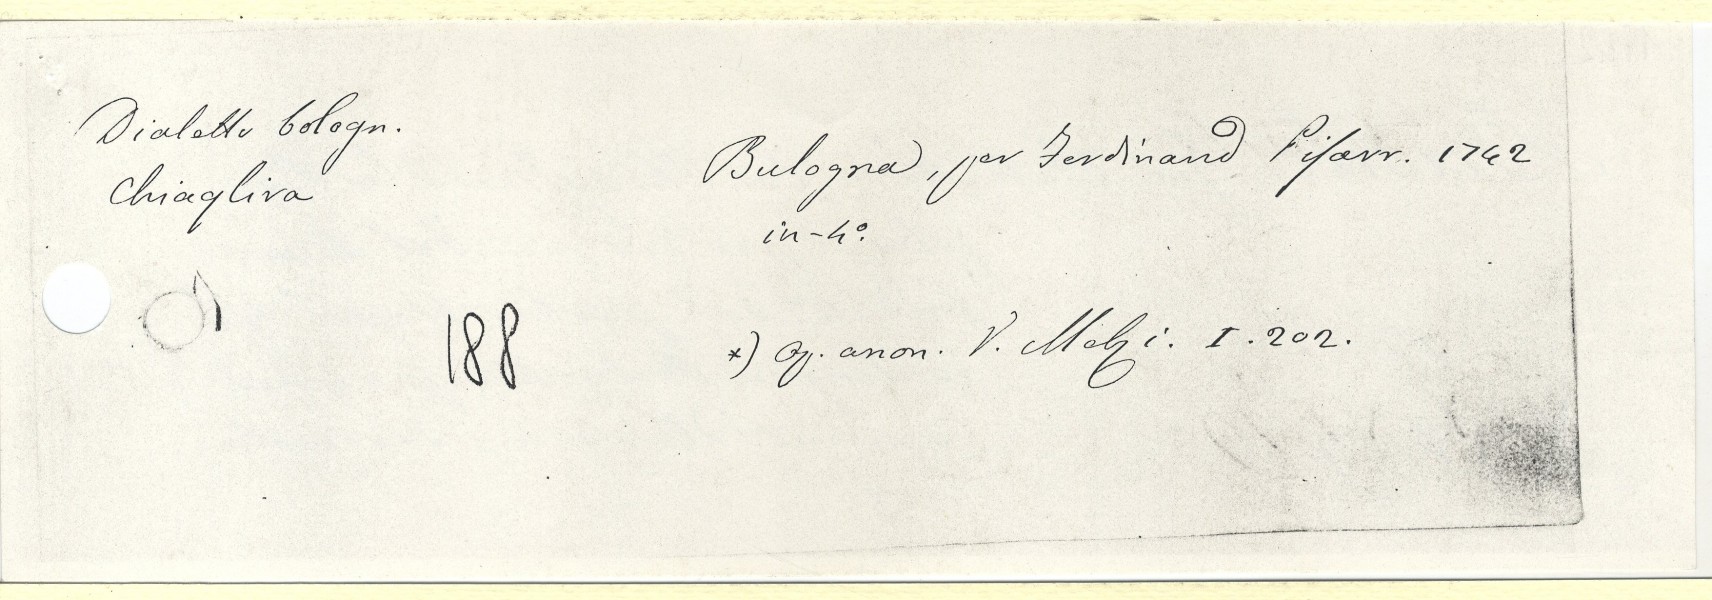 Dialetto bologn.
Chiaqlira
Bulogna, per Ferdinand Pisarr. 1742
in-4º.
188
*) op. anon. V. Melzi. I. 202.